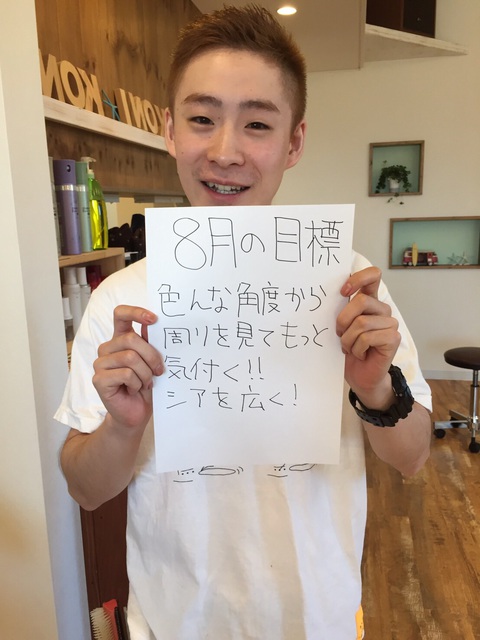 8月の目標
色んな角度から
周りを見てもっと
気付く!!
シアを広く!
KONI KON